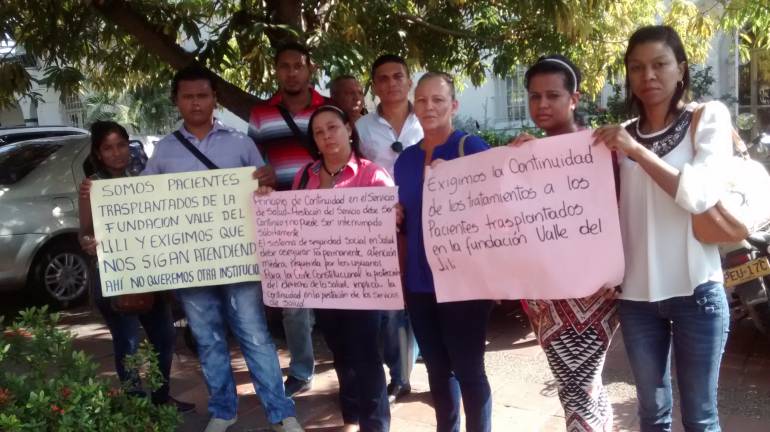 SOMOS PACIENTES
TRASPLANTADOS DE LA
FUNDACION VALLE DEL
LILI Y EXIGIMOS QUE
NOS SIGAN ATENDIENDO
AHI NO QUEREMOS OTRA INSTITUCIO
Principio de Continuidad en
el Servicio
de Salud. Prestación del Servicio debe Ser
Continuo y no puede Ser interrumpido
Súbitamente
El sistema de seguridad Social en Salud
debe asegurar la permanente atención
médica, Requerida por los Usuarios
Para la Corte Constitucional la protección
del derecho de la Salud implica la
Continuidad en la prestación de los Servicios
de Salud
Exigimos la Continuidad
de los tratamientos a los
Pacientes trasplantados
en la fundación Valle del
Lili.
PEU-17C